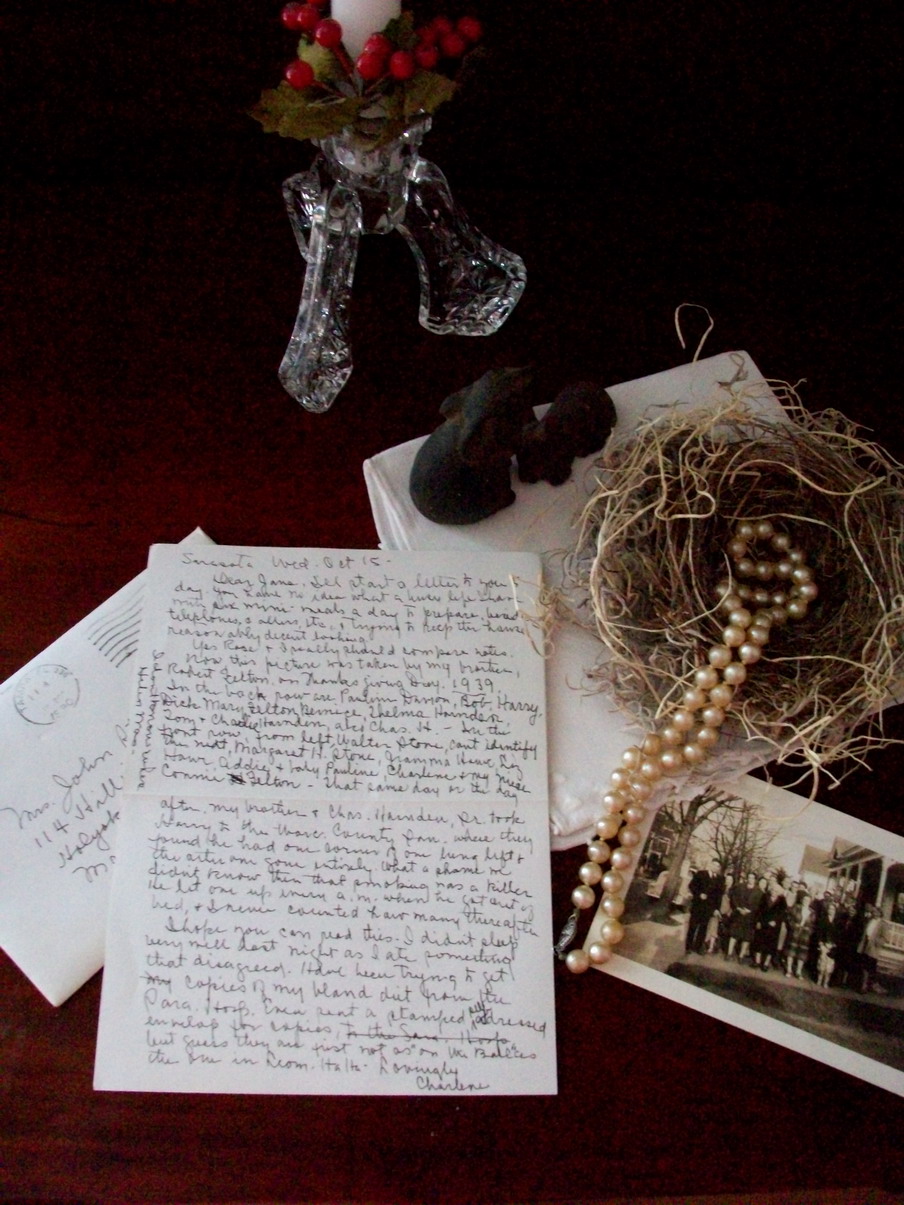 Sarasota Wed. Oct 15-
Dear Jane, I'll start a letter to you
day you have no idea what a busy life when
with five mini-meals a day to prepare,
telephones, & trying to keep the house
reasonably decent looking.
Yes Rose & I really should compare notes.
Now this picture was taken by my brother,
Robert Felton, on Thanksgiving Day, 1939.
In the back row are Pauline Davison, Bob, Harry,
Dick Mary Felton Bernice, Thelma Harnden,
Tom & Charlie Harnden, also Chas. H. - In the
front row from left, Walter Stone, can't identify
the next, Margaret H. Stone, Gramma Hawe,
Hawe, Addie & baby Pauline, Charlene & my niece
Connie Felton - That same day or the day
after, my brother & Chas. Harnden, Sr. took
Harry to the County San. where they
found he had one corner of one lung left &
the other one gone entirely. What a shame we
didn't know then that smoking was a killer
He lit one up every a.m. when he got out of
bed, & I never counted how many thereafter
I hope you can read this. I didn't sleep
very well last night as I ate something
that disagreed. Have been trying to get
my copies of my bland diet from the
Sara. Hosp. Even sent a stamped addressed
envelop for copies, to the Sara. Hosp.
but guess they are just not as on the ball as
the one in Leom. Ha Ha - Lovingly
Charlene
Mrs. John
114 Hill
Holyok